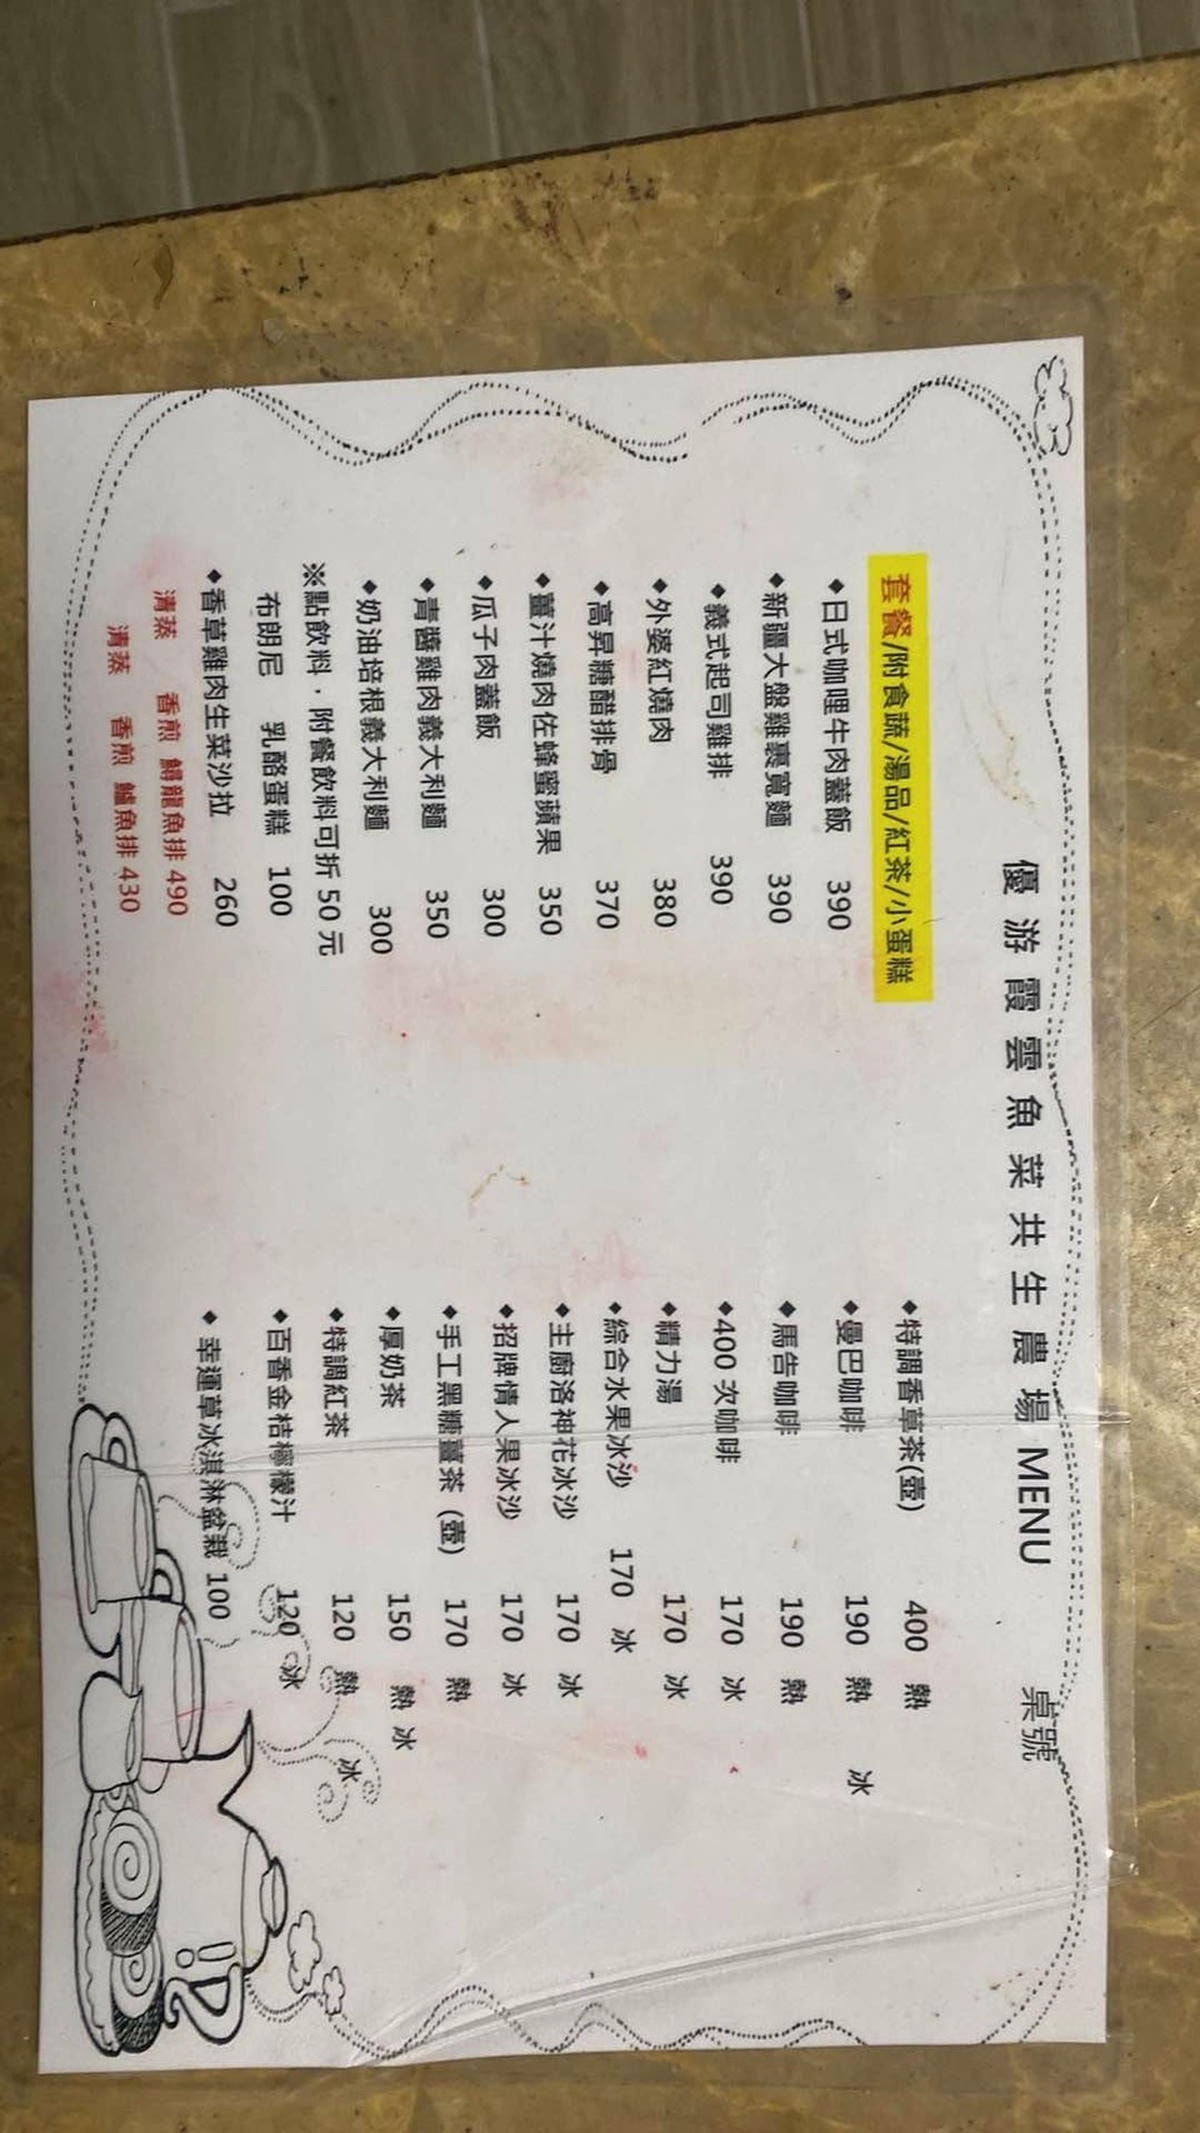 優游霞雲魚菜共生農場 MENU 桌號
套餐/附食蔬/湯品/紅茶/小蛋糕
◆日式咖哩牛肉蓋飯 390
◆新疆大盤雞裹寬麵 390
◆義式起司雞排 390
◆外婆紅燒肉 380
◆高昇糖醋排骨 370
◆薑汁燒肉佐蜂蜜蘋果 350
◆瓜子肉蓋飯 300
◆青醬雞肉義大利麵 350
◆奶油培根義大利麵 300
※點飲料，附餐飲料可折 50 元
布朗尼 乳酪蛋糕 100
◆香草雞肉生菜沙拉 260
清蒸 香煎 鱘龍魚排 490
清蒸 香煎 鱸魚排 430
◆特調香草茶(壺) 400 熱
◆曼巴咖啡 190 熱 冰
◆馬告咖啡 190 熱
◆400 次咖啡 170 冰
◆精力湯 170 冰
◆綜合水果冰沙 170 冰
◆主廚洛神花冰沙 170 冰
◆招牌情人果冰沙 170 冰
◆手工黑糖薑茶 (壺) 170 熱
◆厚奶茶 150 熱 冰
◆特調紅茶 120 熱 冰
◆百香金桔檸檬汁 120 冰
◆ 幸運草冰淇淋盆栽 100